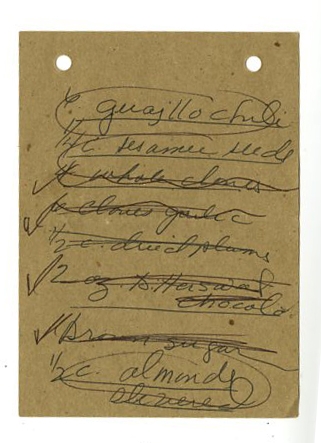 6 guajillo chili
1/4 c. sesame seeds
4 whole cloves
6 cloves garlic
1/2 c. dried plums
2 oz. bittersweet
chocolate
brown sugar
1/2 c. almonds
slivered